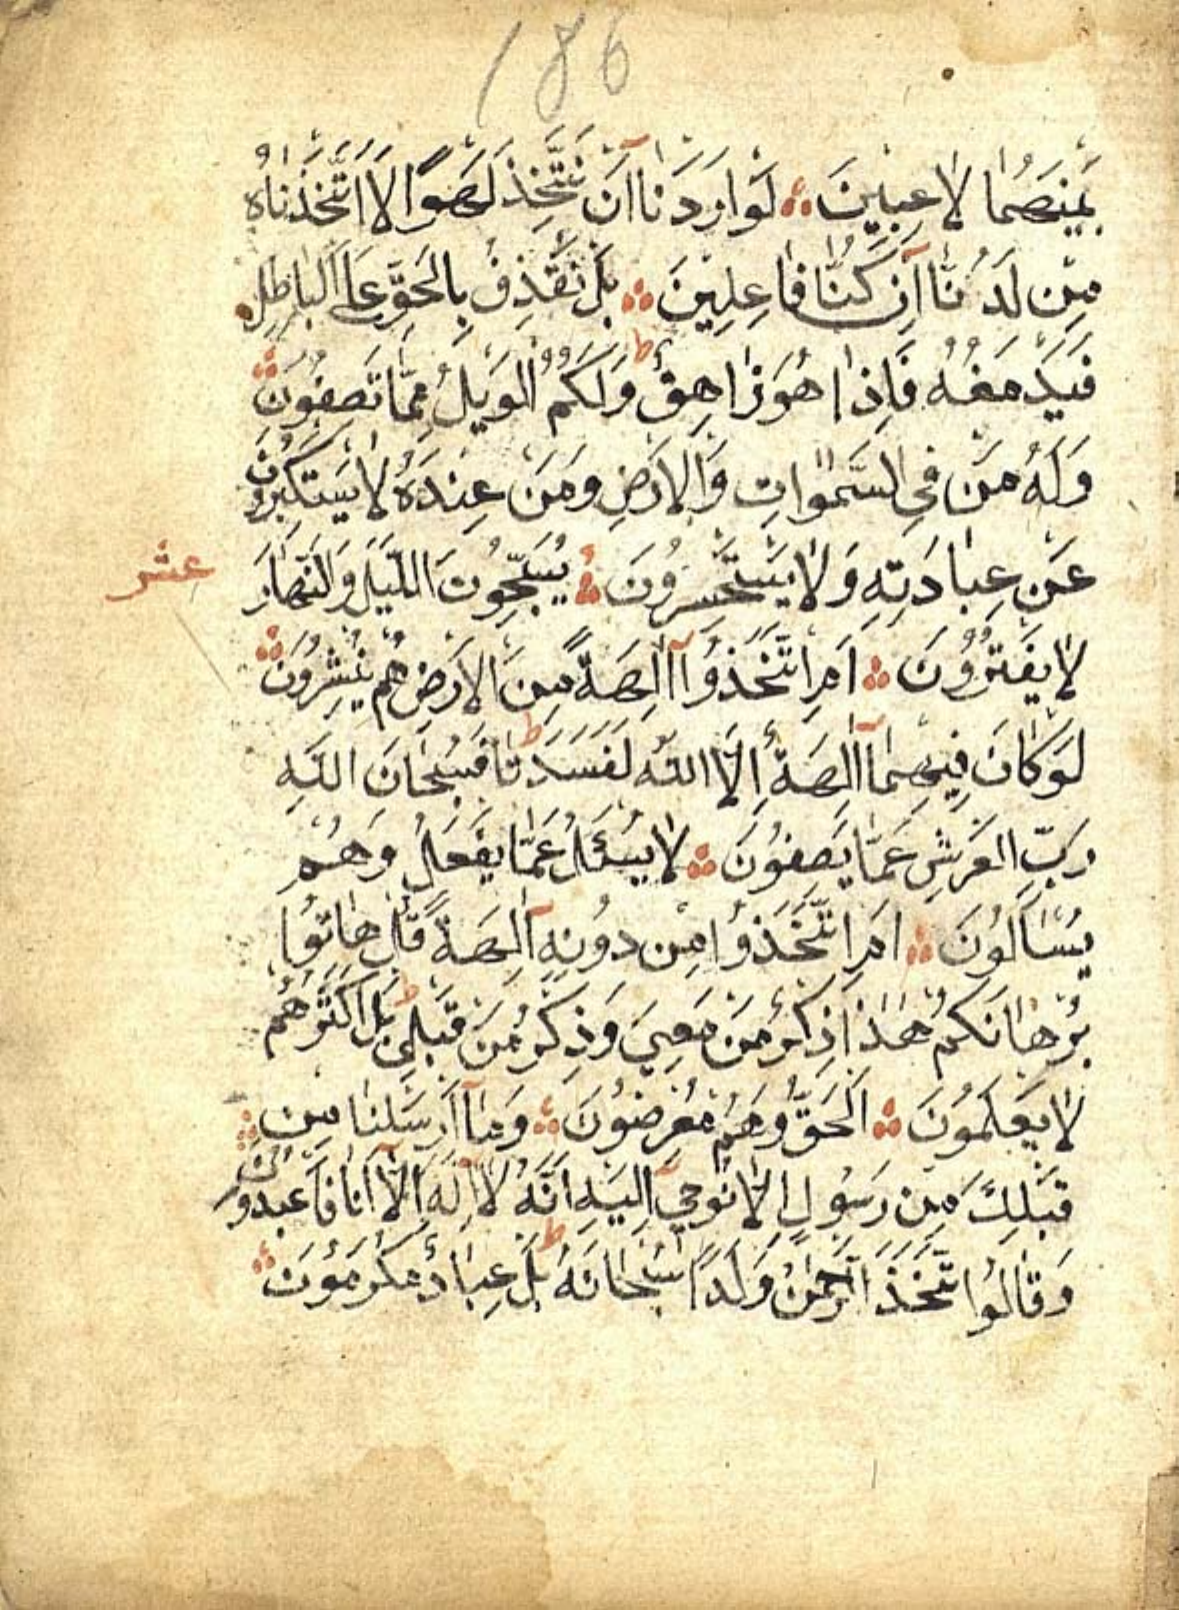 186
بَيْنَهُمَا لَاعِبِينَ لَوْ اَرَدْنَا اَنْ نَتَّخِذَ لَهْوًا لَا اتَّخَذْنَاهُ
مِنْ لَدُنَّا اِنْ كُنَّا فَاعِلِينَ بَلْ نَقْذِفُ بِالْحَقِّ عَلَى الْبَاطِلِ
فَيَدْمَغُهُ فَاِذَا هُوَ زَاهِقٌ ط وَلَكُمُ الْوَيْلُ مِمَّا تَصِفُونَ
وَلَهُ مَنْ فِي السَّمٰوَاتِ وَالْاَرْضِ وَمَنْ عِنْدَهُ لَا يَسْتَكْبِرُونَ
عَنْ عِبَادَتِهِ وَلَا يَسْتَحْسِرُونَ يُسَبِّحُونَ الَّيْلَ وَالنَّهَارَ
عشر
لَا يَفْتُرُونَ اَمِ اتَّخَذُوا آلِهَةً مِنَ الْاَرْضِ هُمْ يُنْشِرُونَ
لَوْ كَانَ فِيهِمَا آلِهَةٌ اِلَّا اللّٰهُ لَفَسَدَتَا ط فَسُبْحَانَ اللّٰهِ
رَبِّ الْعَرْشِ عَمَّا يَصِفُونَ لَا يُسْئَلُ عَمَّا يَفْعَلُ وَهُمْ
يُسْاَلُونَ اَمِ اتَّخَذُوا مِنْ دُونِهِ آلِهَةً قُلْ هَاتُوا
بُرْهَانَكُمْ هٰذَا ذِكْرُ مَنْ مَعِيَ وَذِكْرُ مَنْ قَبْلِي ط بَلْ اَكْثَرُهُمْ
لَا يَعْلَمُونَ اَلْحَقَّ وَهُمْ مُعْرِضُونَ وَمَا اَرْسَلْنَا مِنْ
قَبْلِكَ مِنْ رَسُولٍ اِلَّا نُوحِي اِلَيْهِ اَنَّهُ لَا اِلٰهَ اِلَّا اَنَا فَاعْبُدُونِ
وَقَالُوا اتَّخَذَ الرَّحْمٰنُ وَلَدًا سُبْحَانَهُ ط بَلْ عِبَادٌ مُكْرَمُونَ